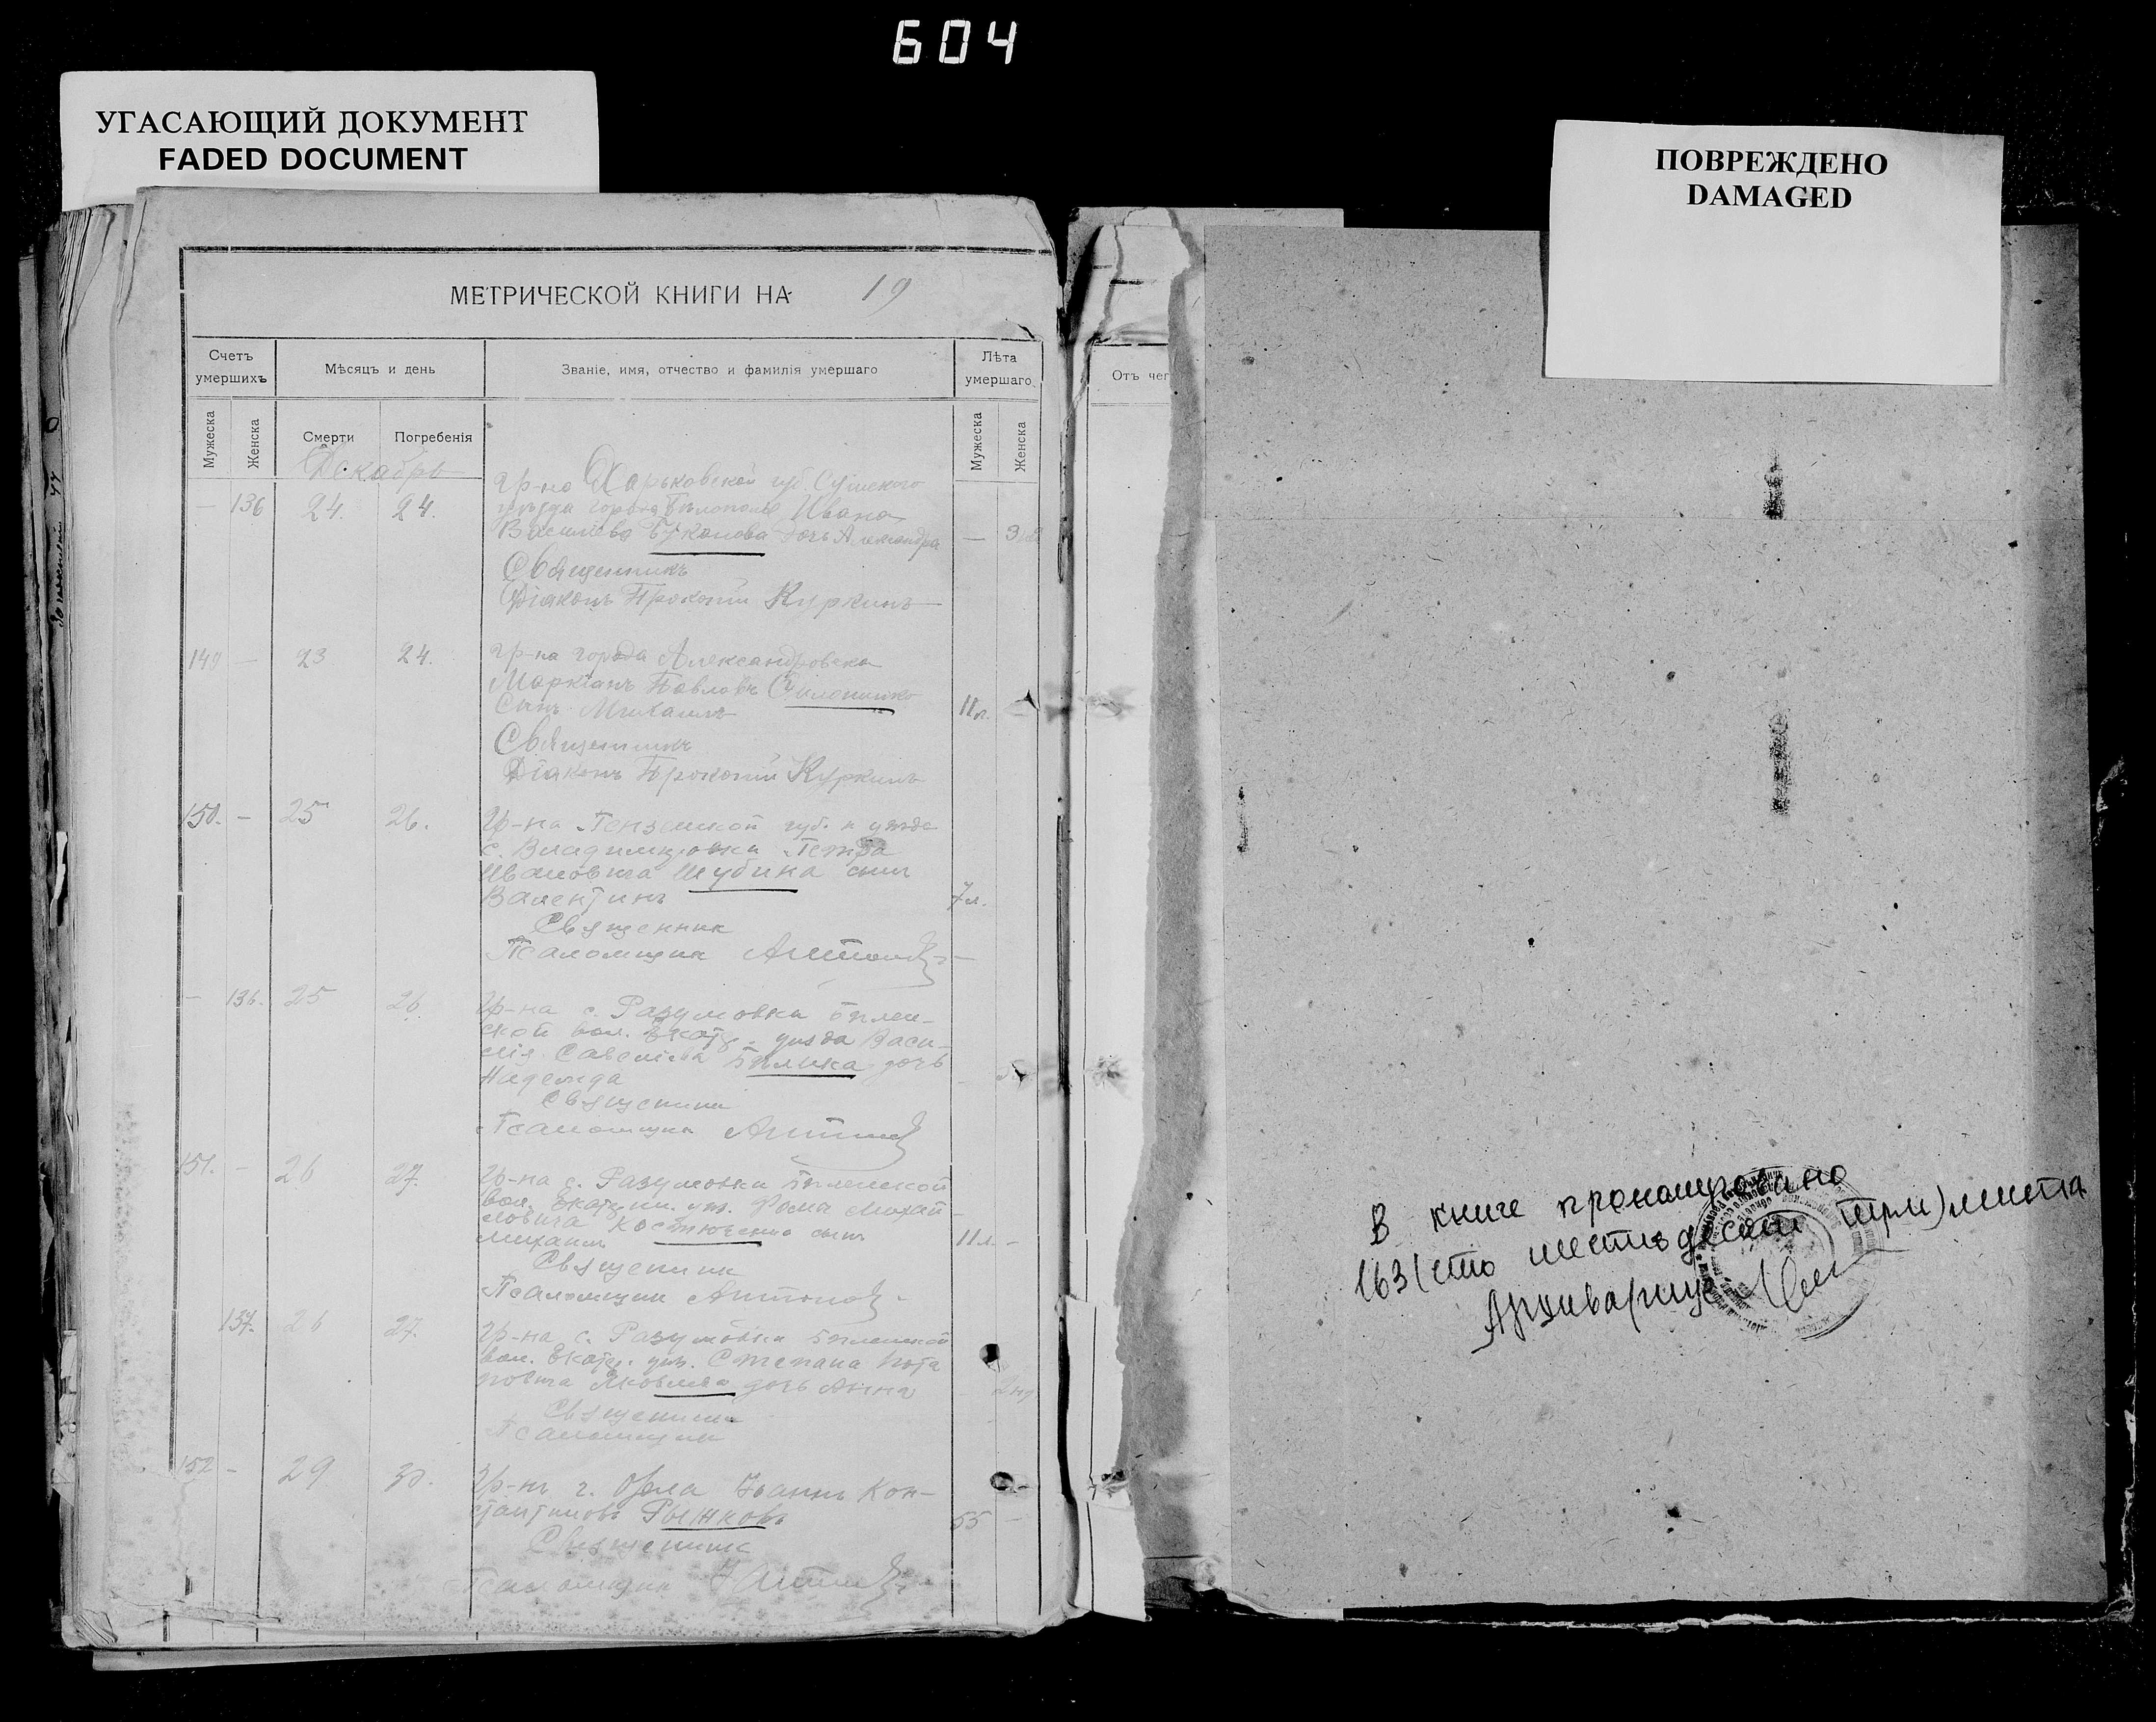 604
УГАСАЮЩИЙ ДОКУМЕНТ
FADED DOCUMENT
ПОВРЕЖДЕНО
DAMAGED
МЕТРИЧЕСКОЙ КНИГИ НА 19
Счетъ умершихъ
Мѣсяцъ и день
Званіе, имя, отчество и фамилія умершаго
Лѣта умершаго
Мужеска
Женска
Смерти
Погребенія
Мужеска
Женска
Отъ чег
Декабрь
гр-на Харьковской губ. Сумскаго
— 136 24. 24. уѣзда города Бѣлополье Ивана
Букалова дочь Александра —
Священникъ
Діаконъ Прокопій Куркинъ
149 — 23 24. гр-на города Александровска
Маркіанъ Павловъ
Сынъ Михаилъ 11л. —
Священникъ
Діаконъ Прокопій Куркинъ
150. — 25 26. Гр-на Пензенской губ. и уѣзда
с. Владимировки Петра
Ивановича Шубина сынъ
Валентинъ 7л.
Священник
Псаломщик Антонов
— 136. 25 26 Гр-на с. Разумовки Бѣлен-
ской вол. Екат. уѣзда Васи-
лія Савеліева Бѣлика дочь
Надежда —
Священник
Псаломщик Антонов
151. — 26 27. Гр-на с. Разумовки Бѣленской
вол. Екатерин. уѣз. Фомы Михай-
ловича Костюченко сынъ
Михаилъ 11л. —
Священник
Псаломщик Антонов
137. 26 27. Гр-на с. Разумовки Бѣленской
вол. Екатер. уѣз. Степана Пота
повича Яковлева дочь Анна
Священник
Псаломщик
152 — 29 30. Гр-нъ г. Орла Іоаннъ Кон-
стантиновъ Рыжковъ 55 —
Священник
Псаломщик Антонов
В книге пронумеровано
163 (сто шестьдесят три) листа
Архивариус